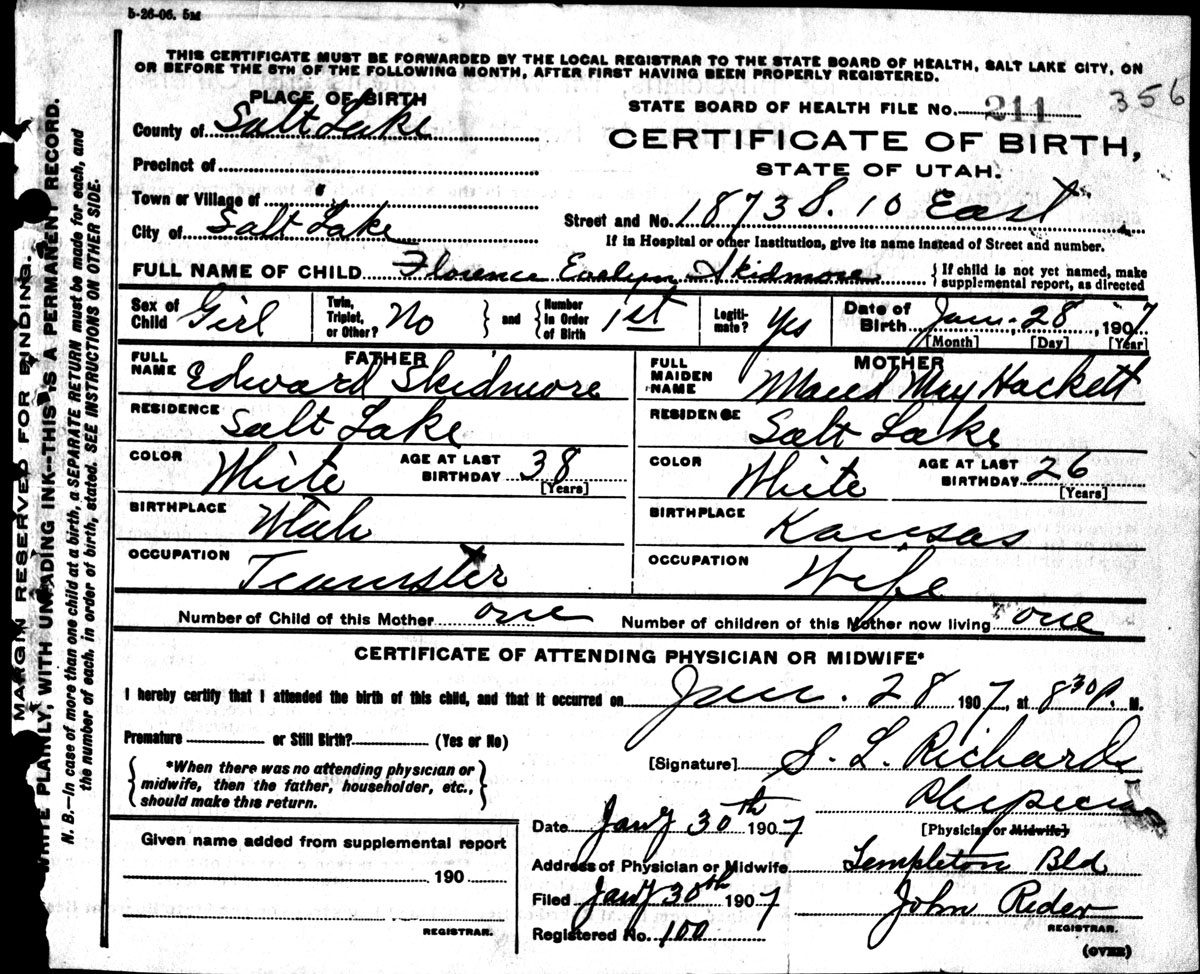 5-26-06. 5M
THIS CERTIFICATE MUST BE FORWARDED BY THE LOCAL REGISTRAR TO THE STATE BOARD OF HEALTH, SALT LAKE CITY, ON
OR BEFORE THE 5TH OF THE FOLLOWING MONTH, AFTER FIRST HAVING BEEN PROPERLY REGISTERED.
PLACE OF BIRTH
STATE BOARD OF HEALTH FILE No. 211 356
County of Salt Lake
CERTIFICATE OF BIRTH,
Precinct of
STATE OF UTAH.
Town or Village of "
Street and No. 1873 S. 10 East
City of Salt Lake
If in Hospital or other Institution, give its name instead of Street and number.
FULL NAME OF CHILD Florence Evelyn Skidmore { If child is not yet named, make
supplemental report, as directed
Sex of Child Girl
Twin, Triplet, or Other? No } and { Number In Order of Birth 1st
Legitimate? Yes
Date of Birth Jan. 28, 1907
[Month] [Day] [Year]
FATHER
FULL NAME Edward Skidmore
MOTHER
FULL MAIDEN NAME Maud May Hackett
RESIDENCE Salt Lake
RESIDENCE Salt Lake
COLOR White AGE AT LAST BIRTHDAY 38 [Years]
COLOR White AGE AT LAST BIRTHDAY 26 [Years]
BIRTHPLACE Utah
BIRTHPLACE Kansas
OCCUPATION Teamster
OCCUPATION Wife
Number of Child of this Mother one Number of children of this Mother now living one
CERTIFICATE OF ATTENDING PHYSICIAN OR MIDWIFE*
I hereby certify that I attended the birth of this child, and that it occurred on Jan. 28 1907, at 8 30 P. M.
Premature or Still Birth? (Yes or No)
[Signature] S. L. Richards
{ *When there was no attending physician or
midwife, then the father, householder, etc.,
should make this return. }
Physician
[Physician or Midwife]
Date Jany 30th 1907
Given name added from supplemental report
Address of Physician or Midwife Templeton Bld
190
Filed Jany 30th 1907 John Reder
REGISTRAR.
REGISTRAR.
Registered No. 100
(OVER)
MARGIN RESERVED FOR BINDING.
WRITE PLAINLY, WITH UNFADING INK--THIS IS A PERMANENT RECORD.
N. B.--In case of more than one child at a birth, a SEPARATE RETURN must be made for each, and
the number of each, in order of birth, stated. SEE INSTRUCTIONS ON OTHER SIDE.